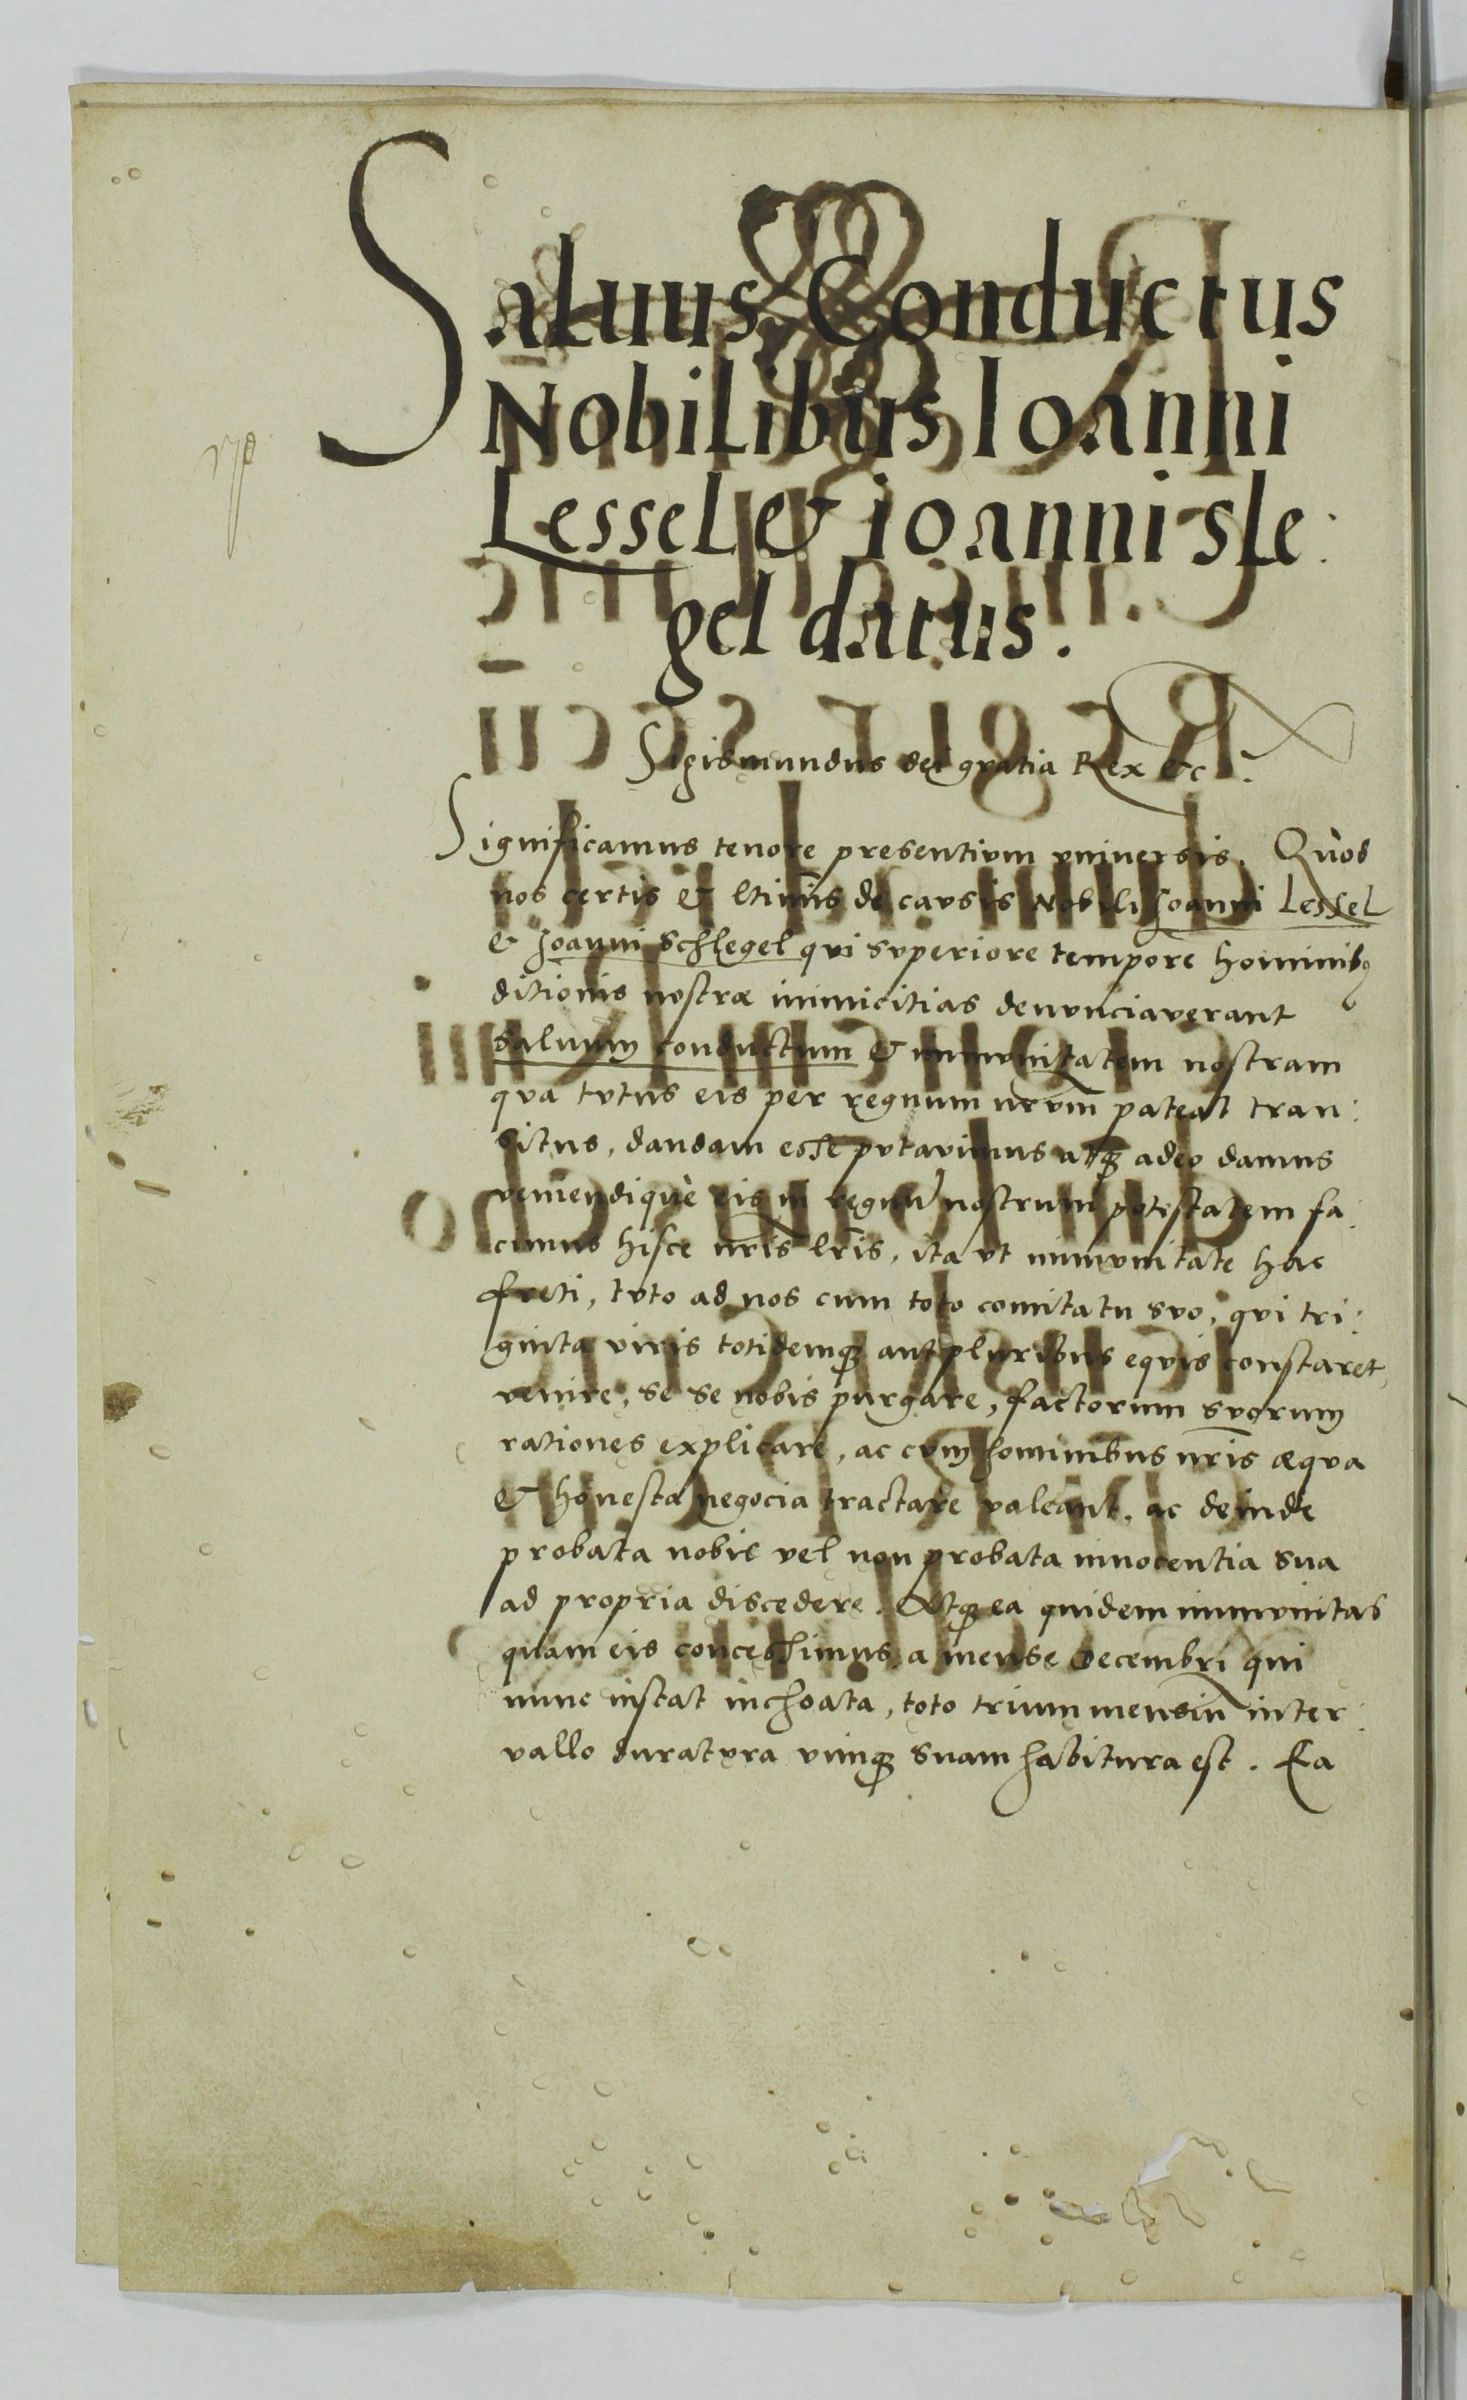 Saluus Conductus
Nobilibus Ioanni
Lessel & ioanni sle:
gel datus.
Sigismundus dei gratia Rex &c.
Significamus tenore presentium vniuersis. Quod
nos certis & ltimis de causis Nobili Joanni Lessel
& Joanni Schlegel qui superiore tempore hominibq
ditionis nostræ inimicitias denunciauerant
saluum conductum & immunitatem nostram
qua tutus eis per regnum nrum pateat tran:
situs, dandam esse putauimus atq adeo damus
veniendique eis in regnum nostrum potestatem fa:
cimus hisce nris lris, ita ut immunitate hac
freti, tuto ad nos cum toto comitatu suo, qui tri:
ginta viris totidemq aut pluribus equis constaret,
venire, se se nobis purgare, factorum suorum
rationes explicare, ac cum hominibus nris æqua
& honesta negocia tractare valeant, ac deinde
probata nobis vel non probata innocentia sua
ad propria discedere. Atq ea quidem immunitas
quam eis concessimus a mense Decembri qui
nunc instat inchoata, toto trium mensiu inter:
vallo duratura vimq suam habitura est. Ea